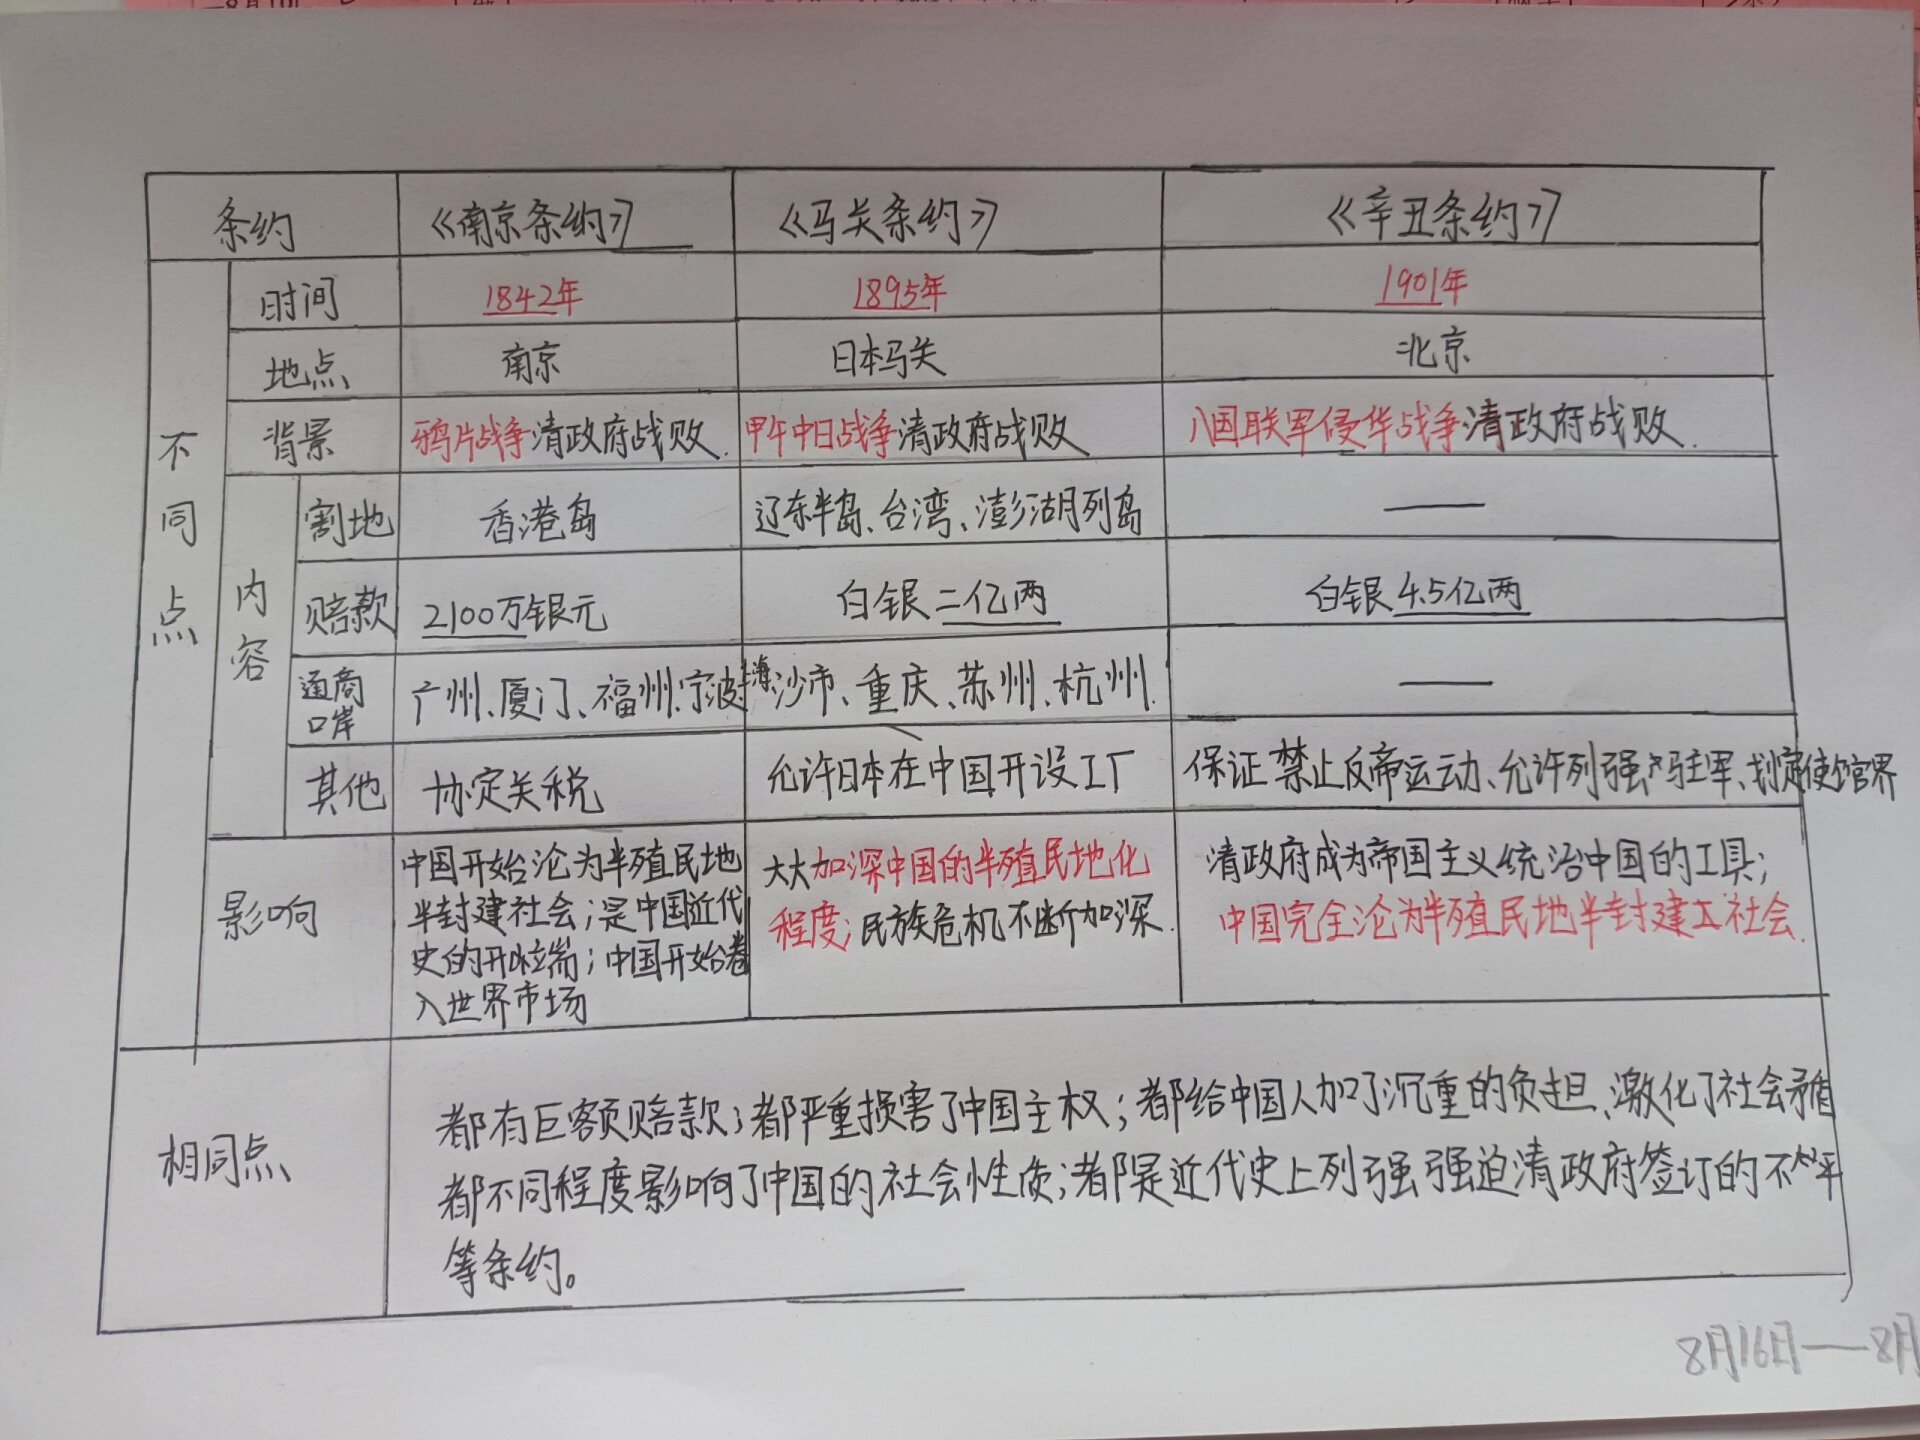 条约 《南京条约》 《马关条约》 《辛丑条约》
不同点
时间 1842年 1895年 1901年
地点 南京 日本马关 北京
背景 鸦片战争清政府战败. 甲午中日战争清政府战败 八国联军侵华战争清政府战败.
内容
割地 香港岛 辽东半岛、台湾、澎湖列岛 ——
赔款 2100万银元 白银二亿两 白银4.5亿两
通商口岸 广州、厦门、福州、宁波、上海 沙市、重庆、苏州、杭州. ——
其他 协定关税 允许日本在中国开设工厂 保证禁止反帝运动、允许列强驻军、划定使馆界
影响
中国开始沦为半殖民地
半封建社会;是中国近代
史的开端;中国开始卷
入世界市场
大大加深中国的半殖民地化
程度;民族危机不断加深.
清政府成为帝国主义统治中国的工具;
中国完全沦为半殖民地半封建社会.
相同点
都有巨额赔款;都严重损害了中国主权;都给中国人加了沉重的负担、激化了社会矛盾
都不同程度影响了中国的社会性质;都是近代史上列强强迫清政府签订的不平
等条约。
8月16日——8月